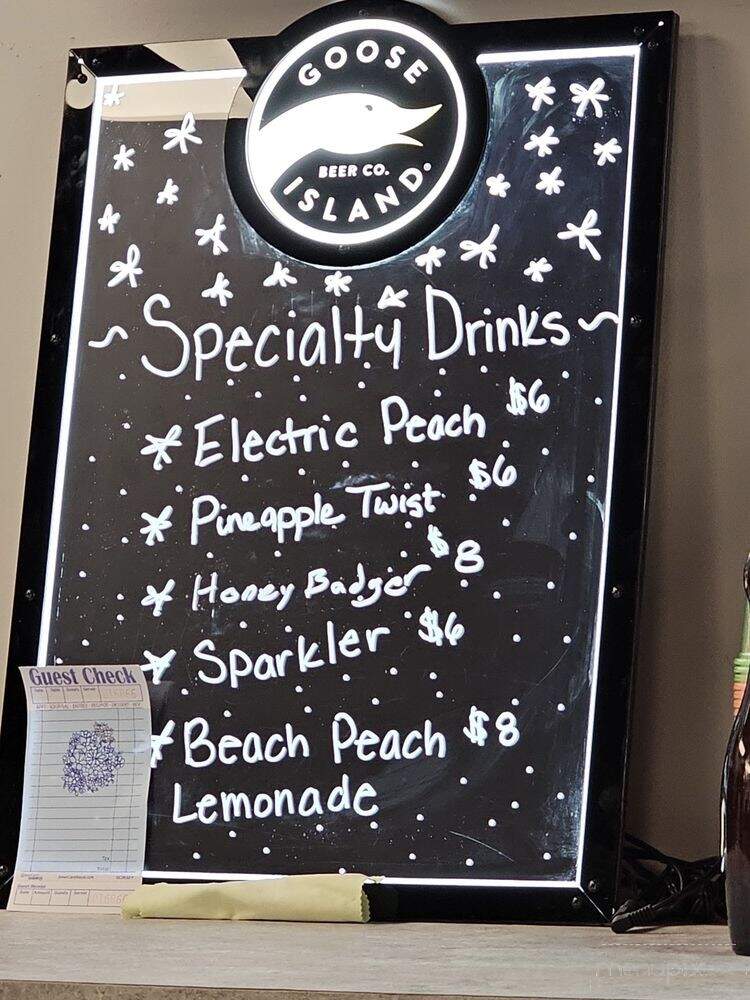 GOOSE
BEER CO.
ISLAND®
~ Specialty Drinks ~
* Electric Peach $6
* Pineapple Twist $6
* Honey Badger $8
* Sparkler $6
* Beach Peach $8
Lemonade
Guest Check